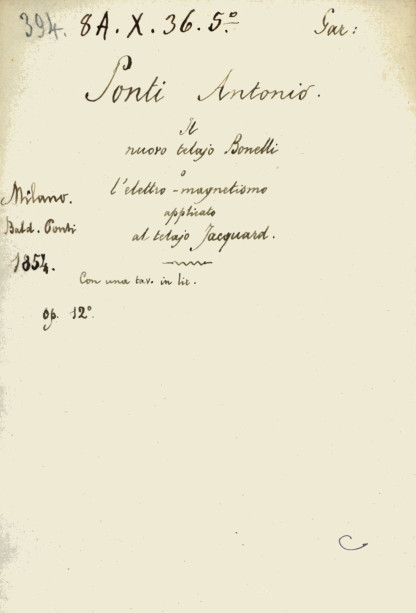 394. 8A. X. 36. 5º. Gar:
Ponti Antonio.
Il
nuovo telajo Bonelli
o
l'elettro-magnetismo
applicato
al telajo Jacquard.
Milano.
Bald. Ponti
1854.
Con una tav. in lit.
op. 12º.